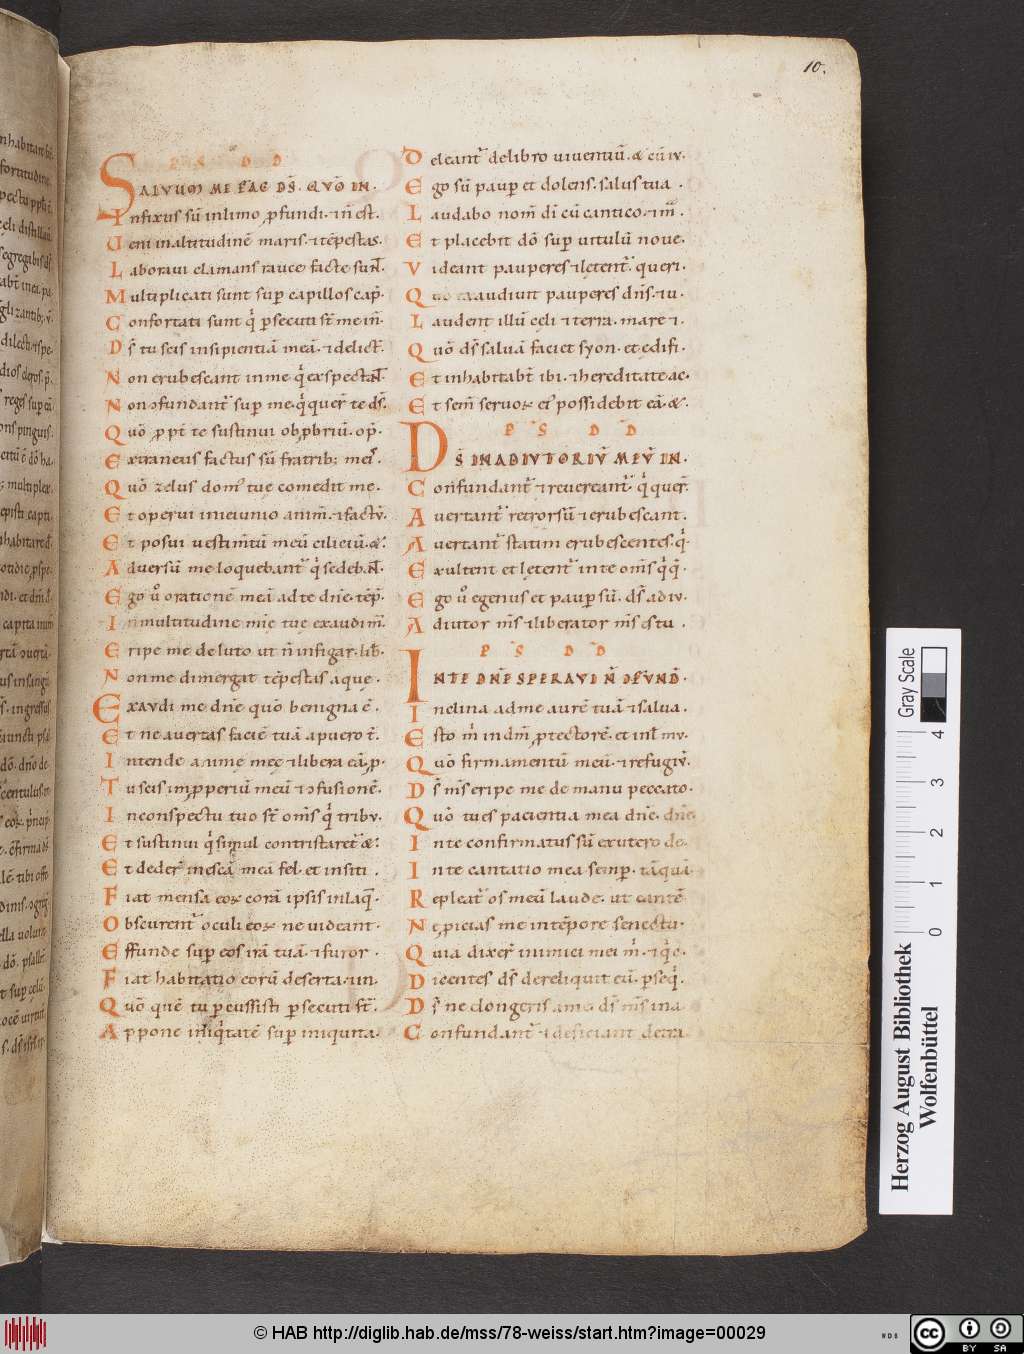 10.
PS DD
SALVUM ME FAC DS̄. QUŌ IN.
Infixus sū inlimo ꝓfundi. ⁊n̄ est.
Ueni inaltitudinē maris. ⁊tēpestas.
Laboraui clamans rauce facte sun̄t.
Multiplicati sunt sup̄ capillos cap̄.
Confortati sunt q̄ ꝑsecuti st̄ me in̄.
Ds̄ tu scis insipientiā meā. ⁊delict̄.
Non erubescant inme q̄ exspectan̄t.
Non ↄfundant̄ sup̄ me. q̄ quer̄ te ds̄.
Quō ꝓpt̄ te sustinui obꝓbriū. op̄.
Extraneus factus sū fratrib; mei᷒.
Quō zelus dom᷒ tuę comedit me.
Et operui inieiunio anim̄. ⁊factū.
Et posui uestim̄tū meū ciliciū. &.
Aduersū me loquebant̄ q̄ sedeb̄.
Ego u̓ orationē meā adte dn̄e. tēp̄.
Inmultitudine mīe tuę exaudim̄.
Eripe me deluto ut n̄ infigar. lib̄.
Nonme dimergat tēpestas aque.
Exaudi me dn̄e quō benigna ē.
Et ne auertas faciē tuā apuero t̄.
Intende anime meę ⁊libera eā. ꝓp.
Tu scis inꝓperiū meū ⁊ↄfusionē.
Inconspectu tuo st̄ om̄s q̄ tribu.
Et sustinui q̄ simul contristaret̄ &.
Et deder̄ inescā meā fel. et insiti.
Fiat mensa eoꝝ corā ipsis inlaq̄.
Obscurent̄ oculi eoꝝ ne uideant.
Effunde sup̄ eos irā tuā. ⁊furor.
Fiat habitatio eorū deserta. ⁊in.
Quō quē tu ꝑcussisti ꝑsecuti st̄.
Appone iniq̄tatē sup̄ iniquita.
Deleant̄ delibro uiuentiū. & cū iu.
Ego sū paup̄ et dolens. salus tua.
Laudabo nom̄ dī cū cantico. ⁊m̄.
Et placebit dō sup̄ uitulū noue.
Videant pauperes ⁊lętent̄. queri.
Quō exaudiuit pauperes dn̄s. ⁊u.
Laudent illū celi ⁊terra. mare ⁊.
Quō ds̄ saluā faciet syon. et edifi.
Et inhabitab̄t ibi. ⁊hereditate ac.
Et sem̄ seruoꝝ ei᷒ possidebit eā. &.
PS DD
DS̄ INADIUTORIŪ MEŪ IN.
Confundant̄ ⁊reuereant̄. q̄ quer̄.
Auertant̄ retrorsū ⁊erubescant.
Auertant̄ statim erubescentes. q̄.
Exultent et lętent̄ inte om̄s q̄ q̄.
Ego u̓ egenus et paup̄ sū. ds̄ adiu.
Adiutor m̄s ⁊liberator m̄s estu.
PS DD
INTE DN̄E SPERAUI N̄ ↃFUND.
Inclina adme aurē tuā ⁊salua.
Esto m̄ indm̄ ꝓtectorē. et inl̄ mu.
Quō firmamentū meū. ⁊refugiū.
Ds̄ m̄s eripe me de manu peccato.
Quō tu es pacientia mea dn̄e. dn̄e.
Inte confirmatus sū exutero de.
Inte cantatio mea semp̄. tāquā
Repleat̄ os meū laude. ut cantē
Ne ꝓicias me intēpore senectu.
Quia dixer̄ inimici mei m̄. ⁊q̄ c.
Dicentes ds̄ dereliquit eū. ꝑseq̄.
Ds̄ ne elongeris ame. ds̄ m̄s ina
Confundant̄ ⁊deficiant detra.
Gray Scale
0 1 2 3 4
Herzog August Bibliothek
Wolfenbüttel
© HAB http://diglib.hab.de/mss/78-weiss/start.htm?image=00029
WDB
cc
BY SA